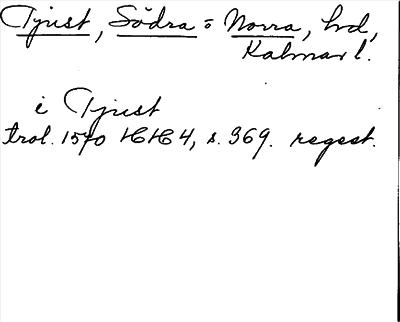 Tjust, Södra o Norra, hd,
Kalmar l.
i Tjust
trol. 1570 HH 4, s. 369. regest.